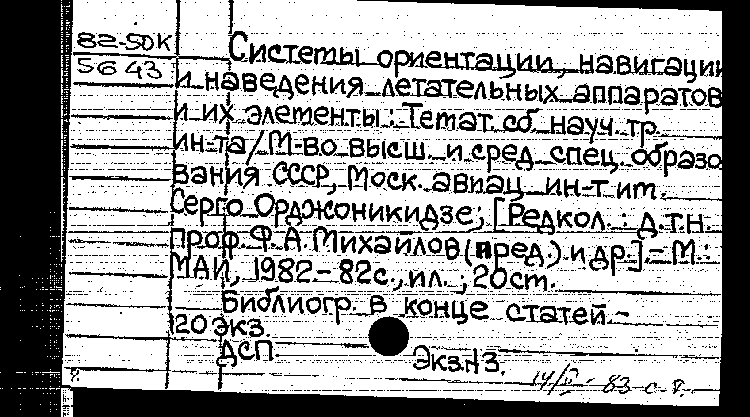 82-50К
5643
Системы ориентации, навигации
и наведения летательных аппаратов
и их элементы: Темат. сб. науч. тр.
ин-та/М-во высш. и сред. спец. образо
вания СССР, Моск. авиац. ин-т им.
Серго Орджоникидзе; [Редкол.: д.т.н.
проф. Ф.А. Михайлов (пред.) и др.] - М.:
МАИ, 1982.- 82с., ил.; 20 ст.
Библиогр. в конце статей.-
120 экз.
ДСП.
Экз.№3.